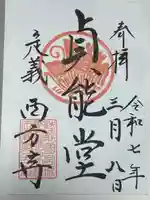 奉拝
令和七年
三月八日
貞能堂
定義
西方寺